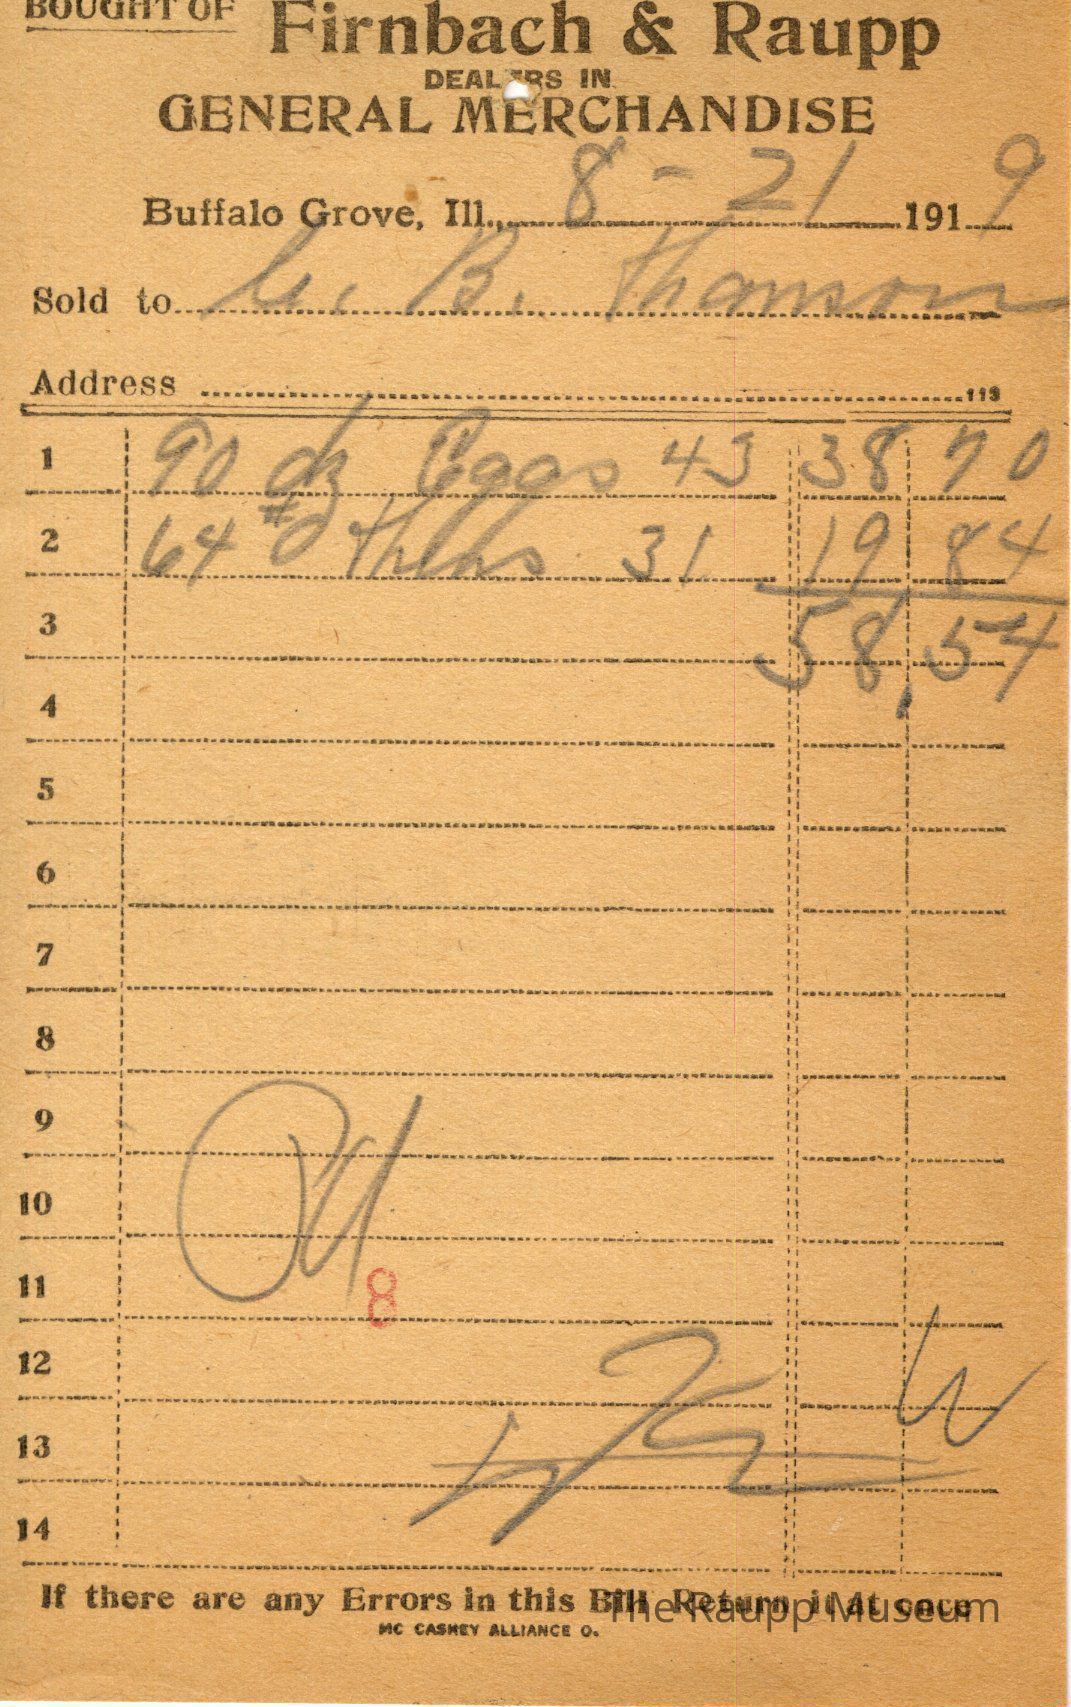 BOUGHT OF
Firnbach & Raupp
DEALERS IN
GENERAL MERCHANDISE
Buffalo Grove, Ill., 8 - 21 1919
Sold to B.
Address 113
1 90 dz Eggs 43 38 70
2 64 # 31 19 84
3 58,54
4
5
6
7
8
9
10 Pd
11 8
12
13
14
If there are any Errors in this Bill Return it at once
The Raupp Museum
MC CASKEY ALLIANCE O.